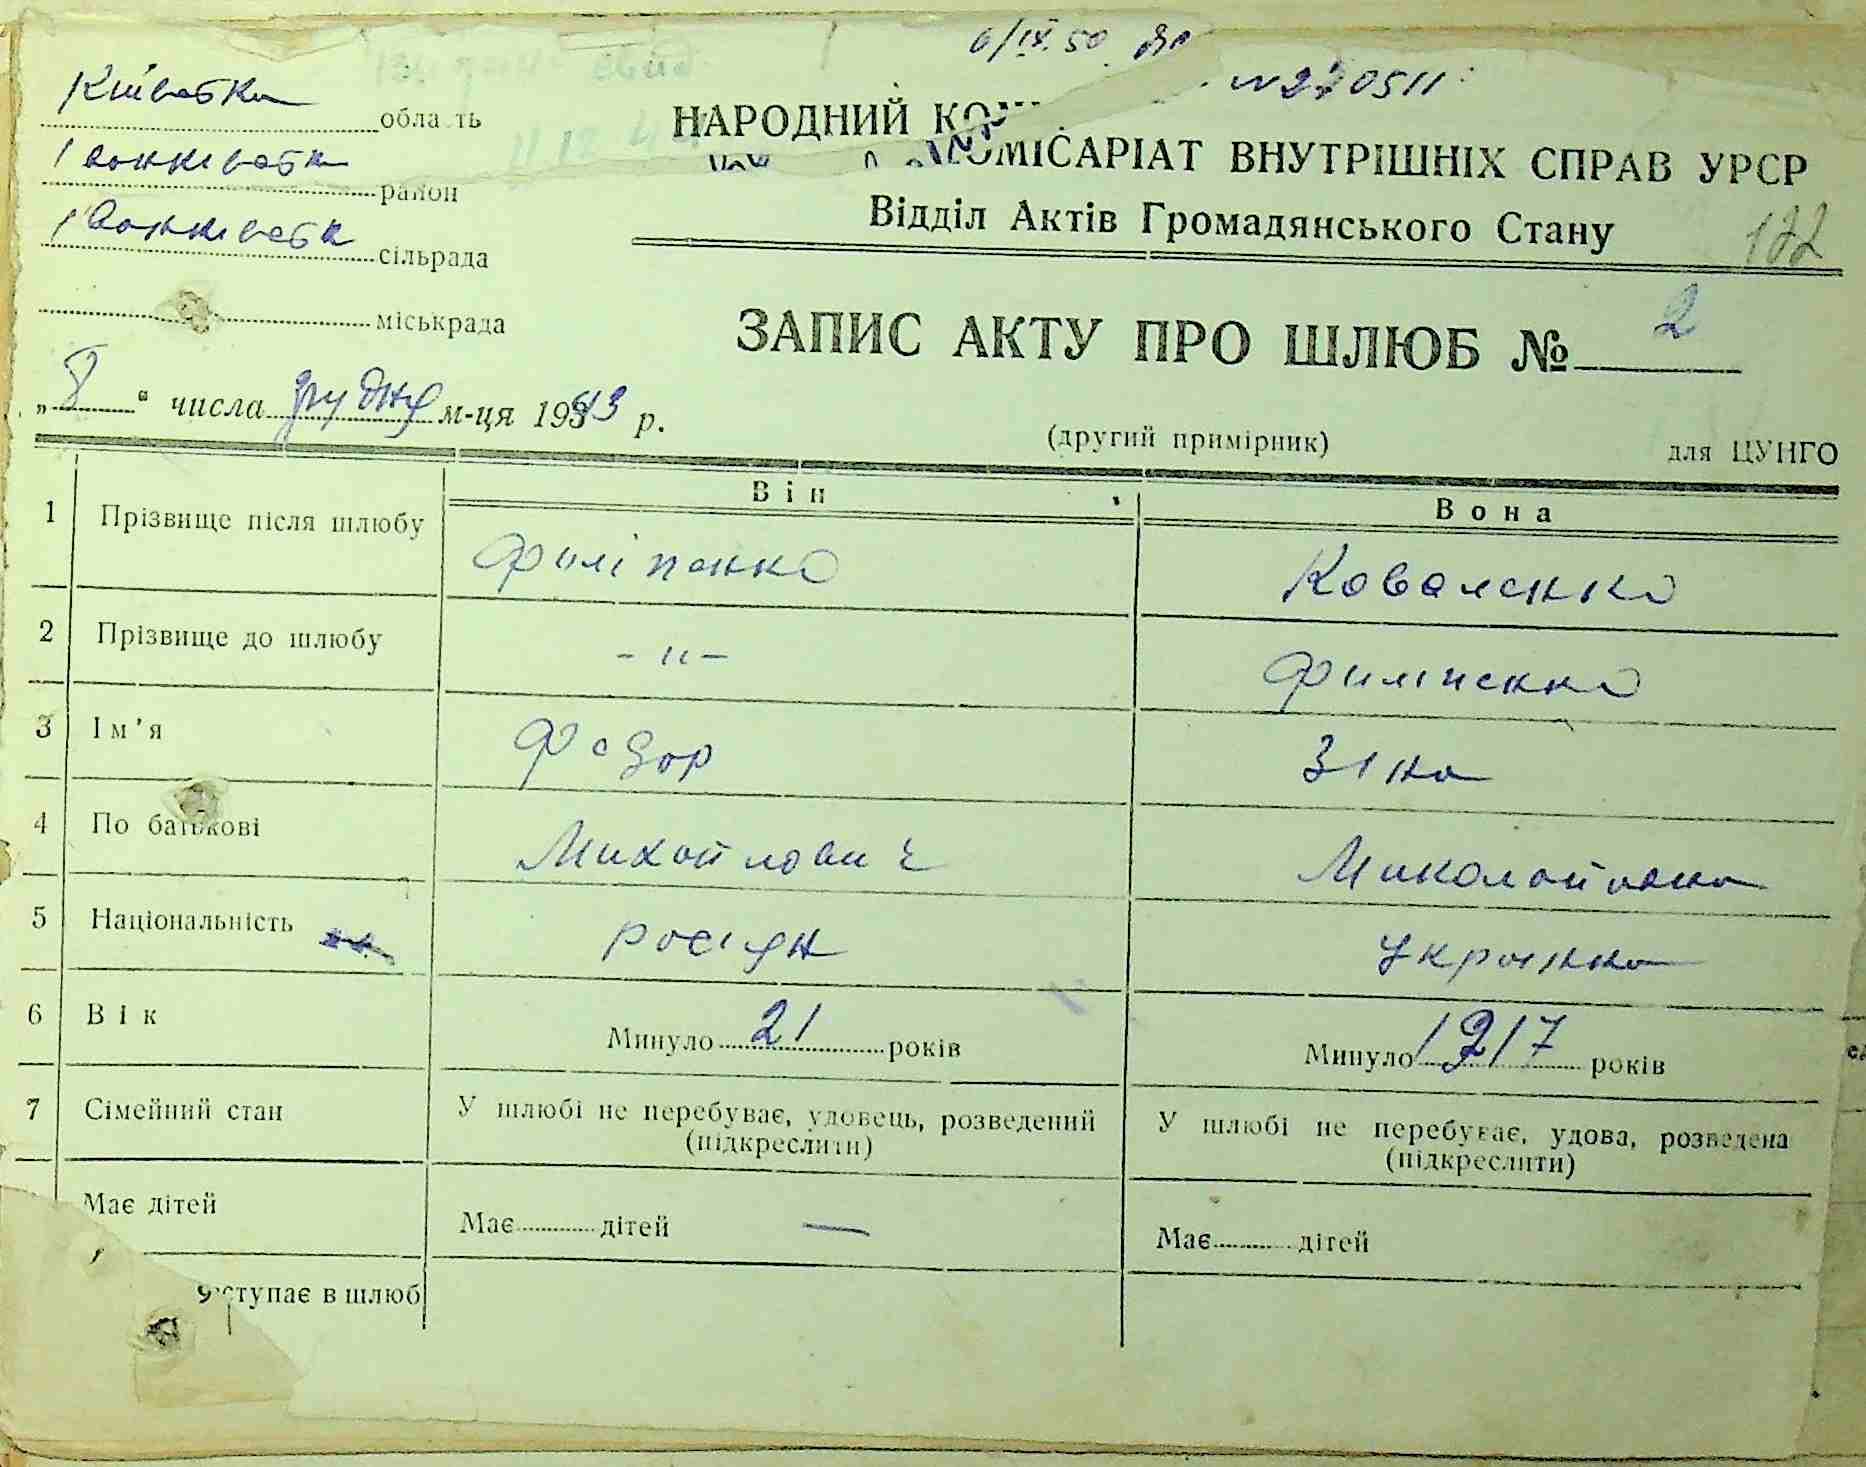 6/IX.50
N 270511
Київська область
Іванківська район
Іванківськ сільрада
міськрада
НАРОДНИЙ КОМІСАРІАТ ВНУТРІШНІХ СПРАВ УРСР
Відділ Актів Громадянського Стану
122
ЗАПИС АКТУ ПРО ШЛЮБ № 2
„8“ числа грудня м-ця 1943 р.
(другий примірник) для ЦУНГО
Він Вона
1 Прізвище після шлюбу Філіпенко Коваленко
2 Прізвище до шлюбу -"- Филіпенко
3 Ім'я Федор Зіна
4 По батькові Михайлович Миколаївна
5 Національність росіян українка
6 Вік Минуло 21 років Минуло 1917 років
7 Сімейний стан У шлюбі не перебуває, удовець, розведений (підкреслити) У шлюбі не перебуває, удова, розведена (підкреслити)
Має дітей Має дітей — Має дітей
вступає в шлюб